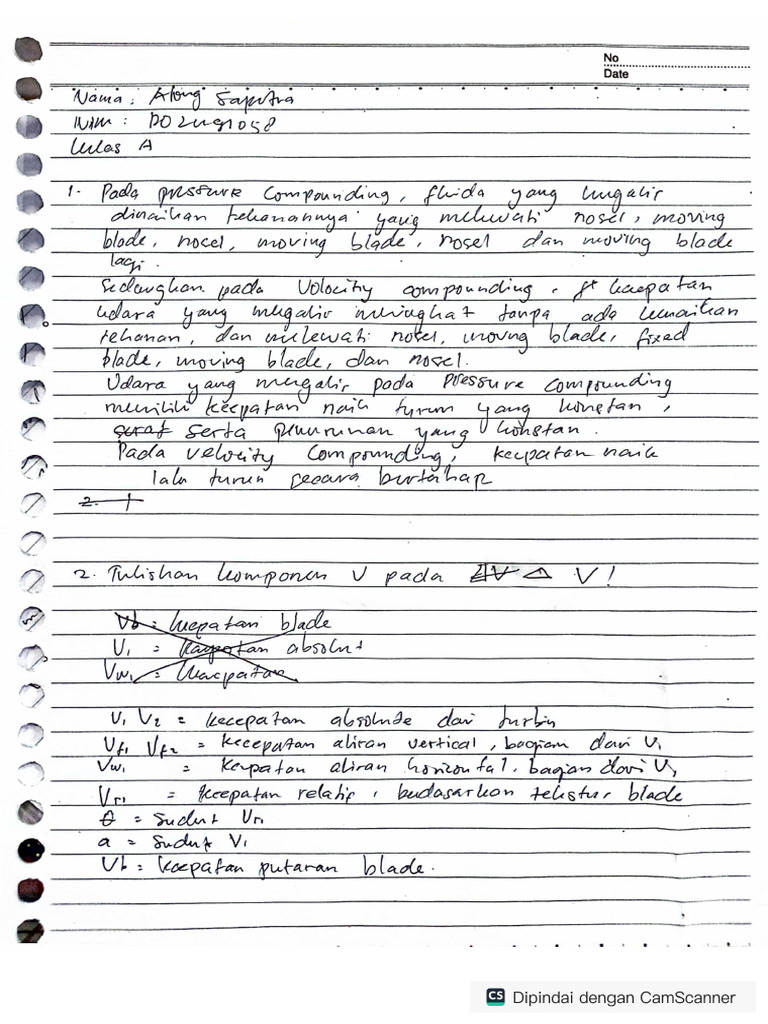 No
Date
Nama : Atong Saputra
NIM :
Kelas A
1. Pada pressure compounding, fluida yang mengalir
dinaikan tekanannya yang melewati nosel, moving
blade, nosel, moving blade, nosel dan moving blade
lagi.
Sedangkan pada Velocity compounding, kecepatan
udara yang mengalir meningkat tanpa ada kenaikan
tekanan, dan melewati nosel, moving blade, fixed
blade, moving blade, dan nosel.
Udara yang mengalir pada Pressure compounding
memiliki kecepatan naik turun yang konstan,
serta penurunan yang konstan.
Pada velocity compounding, kecepatan naik
lalu turun secara bertahap
2.
2. Tuliskan komponen V pada Δ V!
Vb = kecepatan blade
V1 = absolut
Vw1 =
V1 V2 = kecepatan absolute dari turbin
Vf1 Vf2 = kecepatan aliran vertical, bagian dari V1
Vw1 = kecepatan aliran horizontal, bagian dari V1
Vr1 = kecepatan relatif, berdasarkan tekstur blade
θ = sudut Vr1
a = sudut V1
Vb = kecepatan putaran blade.
CS Dipindai dengan CamScanner